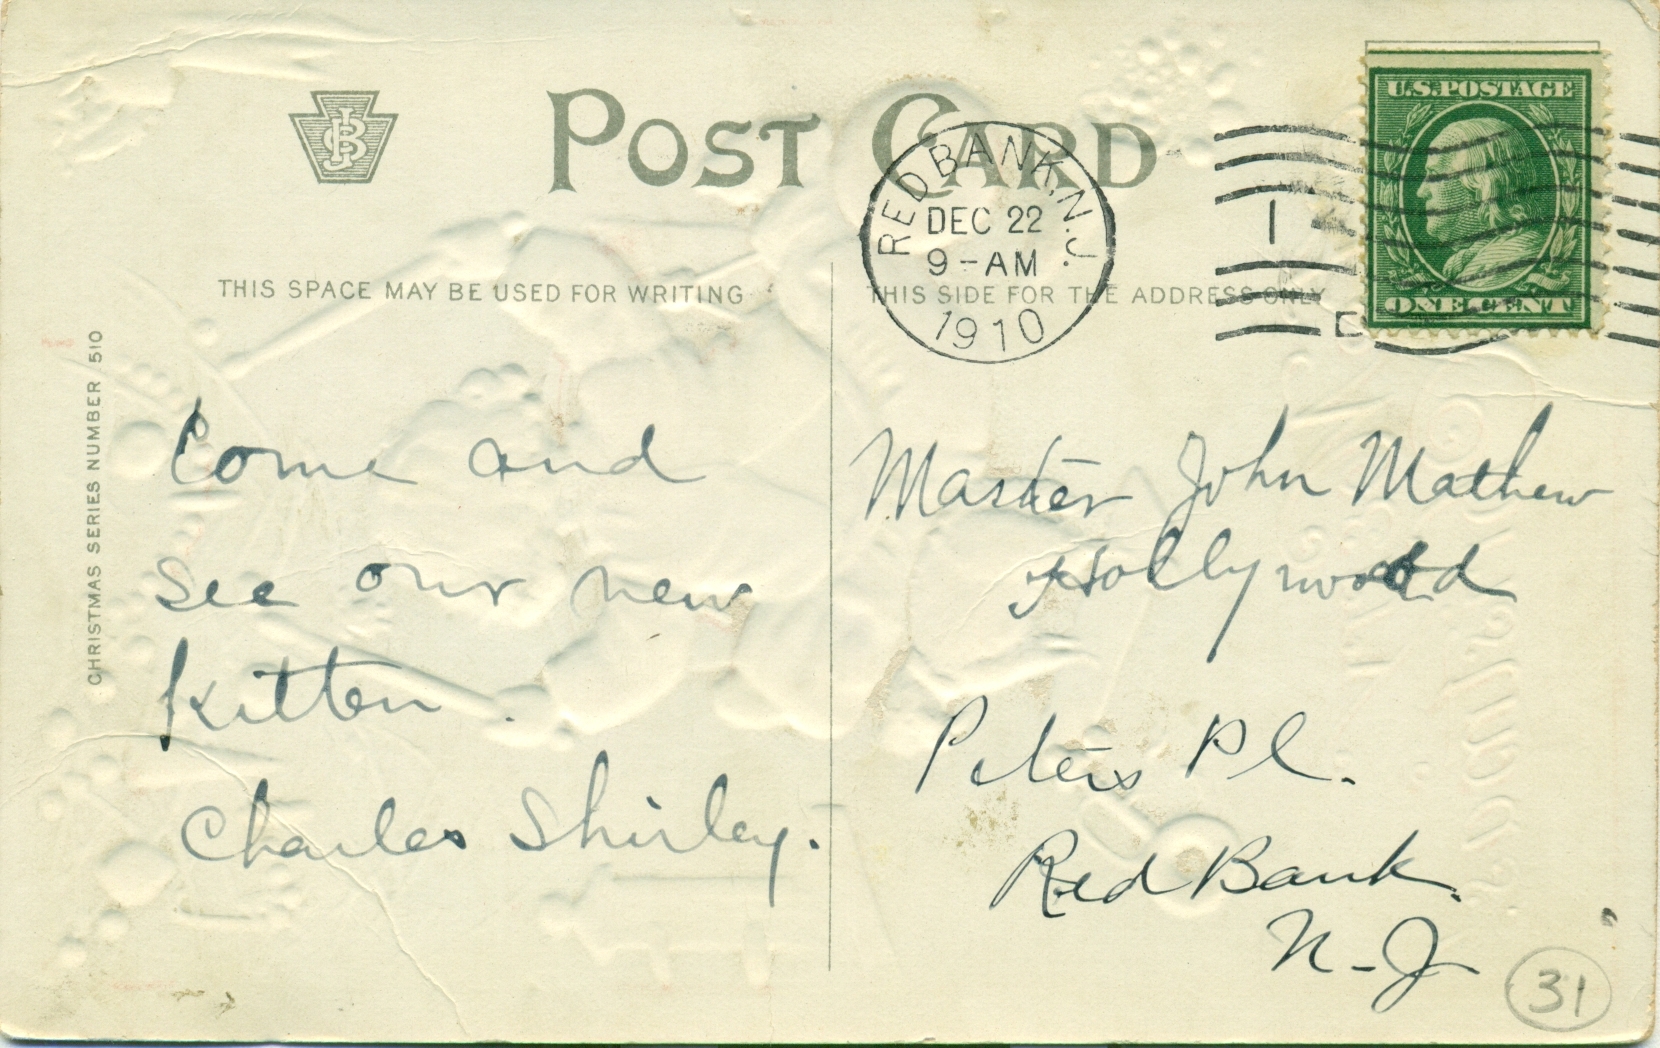 POST CARD
RED BANK. N.J.
DEC 22
9-AM
1910
1
U.S. POSTAGE
ONE CENT
THIS SPACE MAY BE USED FOR WRITING
THIS SIDE FOR THE ADDRESS ONLY
CHRISTMAS SERIES NUMBER 510
Come and
see our new
kitten.
Charles Shirley.
Master John Mathew
Hollywood
Peters Pl.
Red Bank.
N-J
31